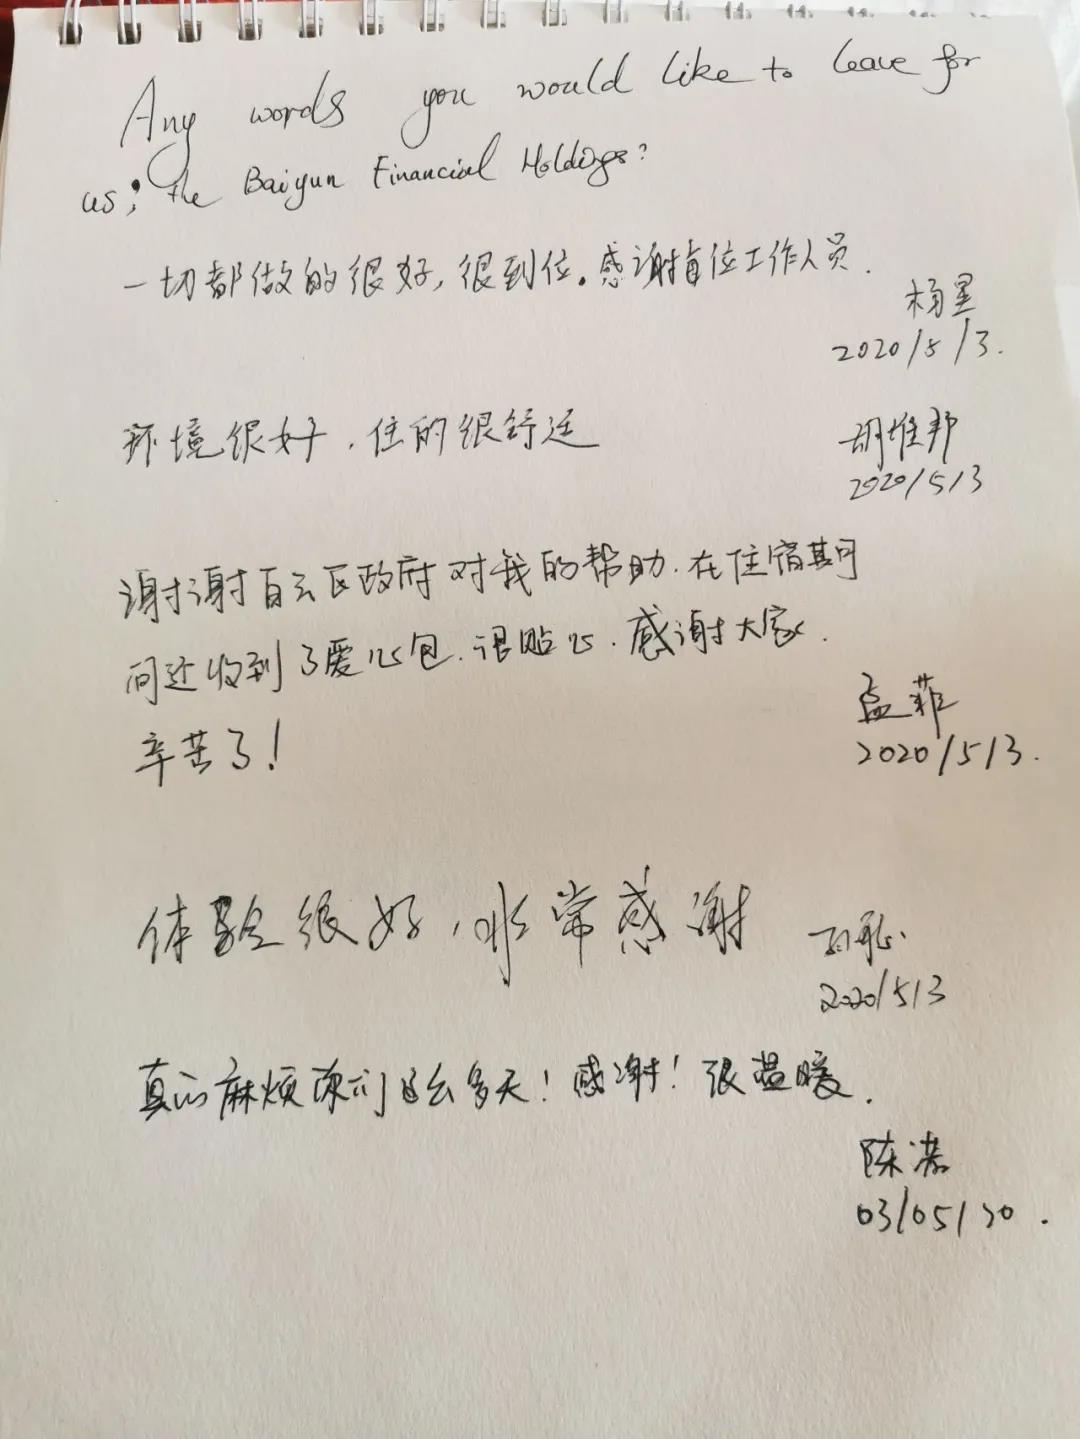 Any words you would like to leave for
us; the Baiyun Financial Holdings?
一切都做的很好,很到位。感谢每位工作人员.
杨星
2020/5/3.
环境很好,住的很舒适
胡维邦
2020/5/3
谢谢白云区政府对我的帮助.在住宿期
间还收到了爱心包.很贴心.感谢大家.
辛苦了!
孟菲
2020/5/3.
体验很好,非常感谢
2020/5/3
真的麻烦你们这么多天!感谢!很温暖.
陈
03/05/20.